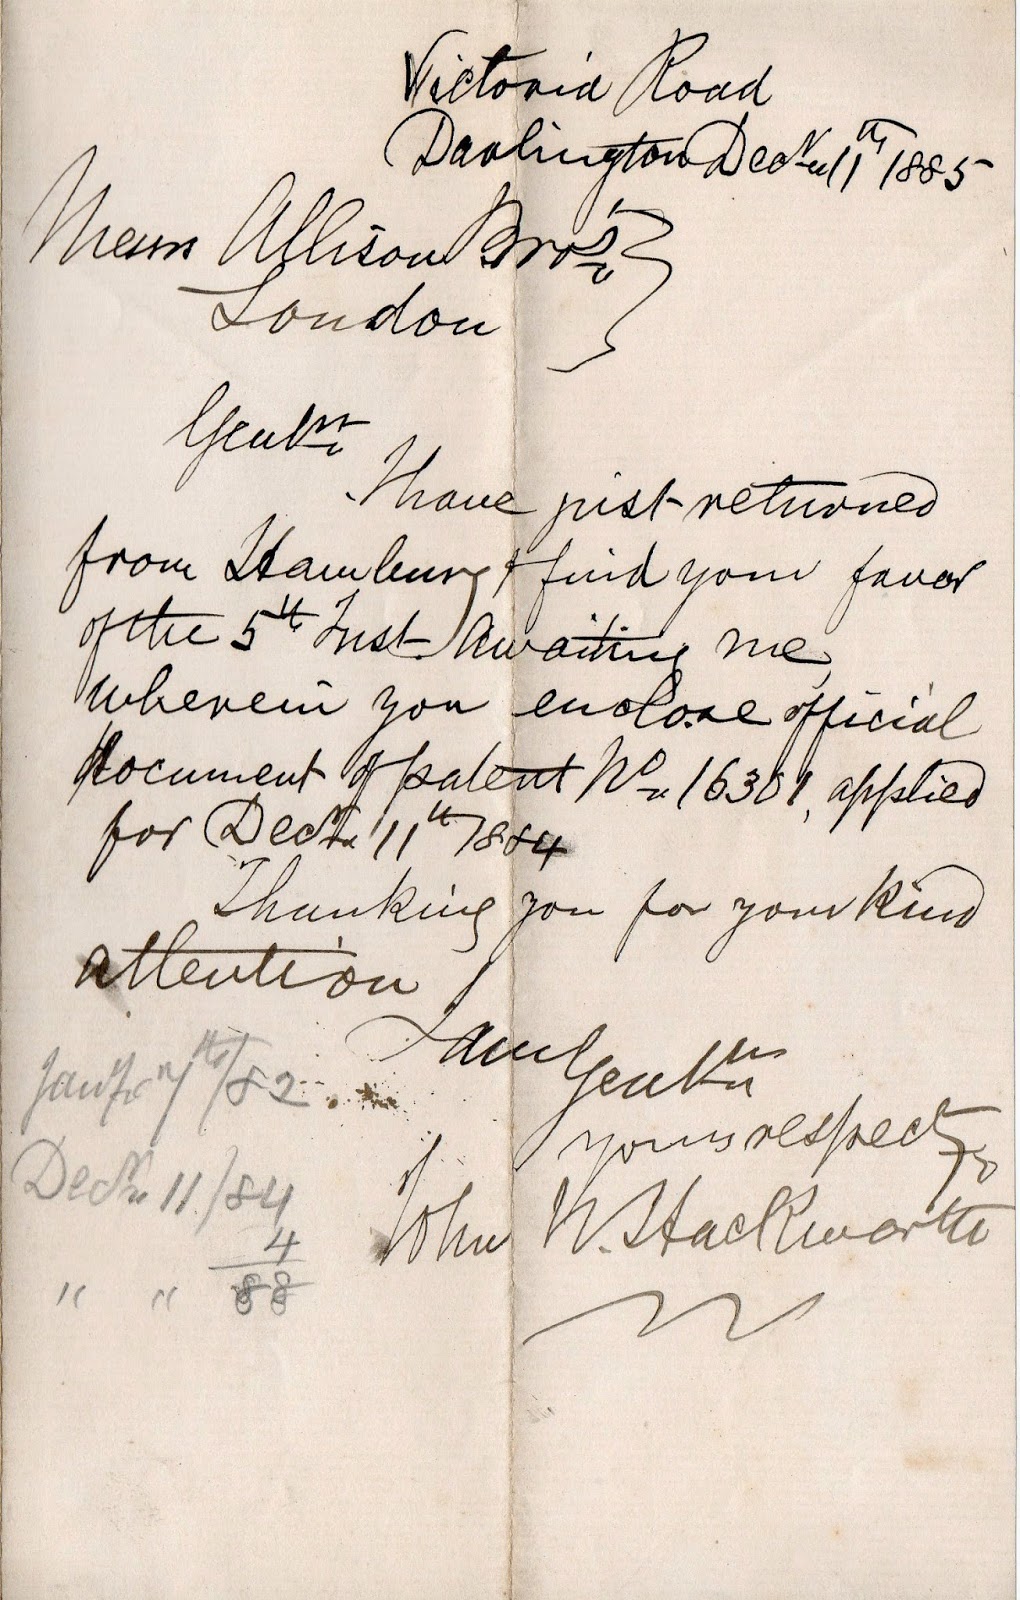 Victoria Road
Darlington Decr 11th 1885
Messrs Allison Bros
London
Gentn
I have just returned
from Hamburg & find your favor
of the 5th Inst. Awaiting me,
wherein you enclose official
document of patent No 16301, applied
for Decr 11th 1884
Thanking you for your kind
attention
I am
Gentn
yours respecty
John W. Hackworth
Jany 7th/82
Decr 11/84
4
" " 88